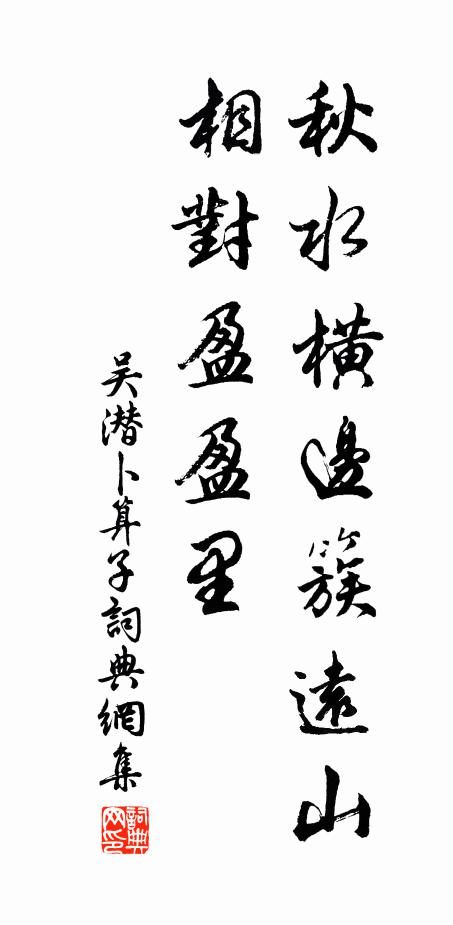 秋水橫邊簇遠山
相對盈盈里
吴潜卜算子詞典網集
詞典网印